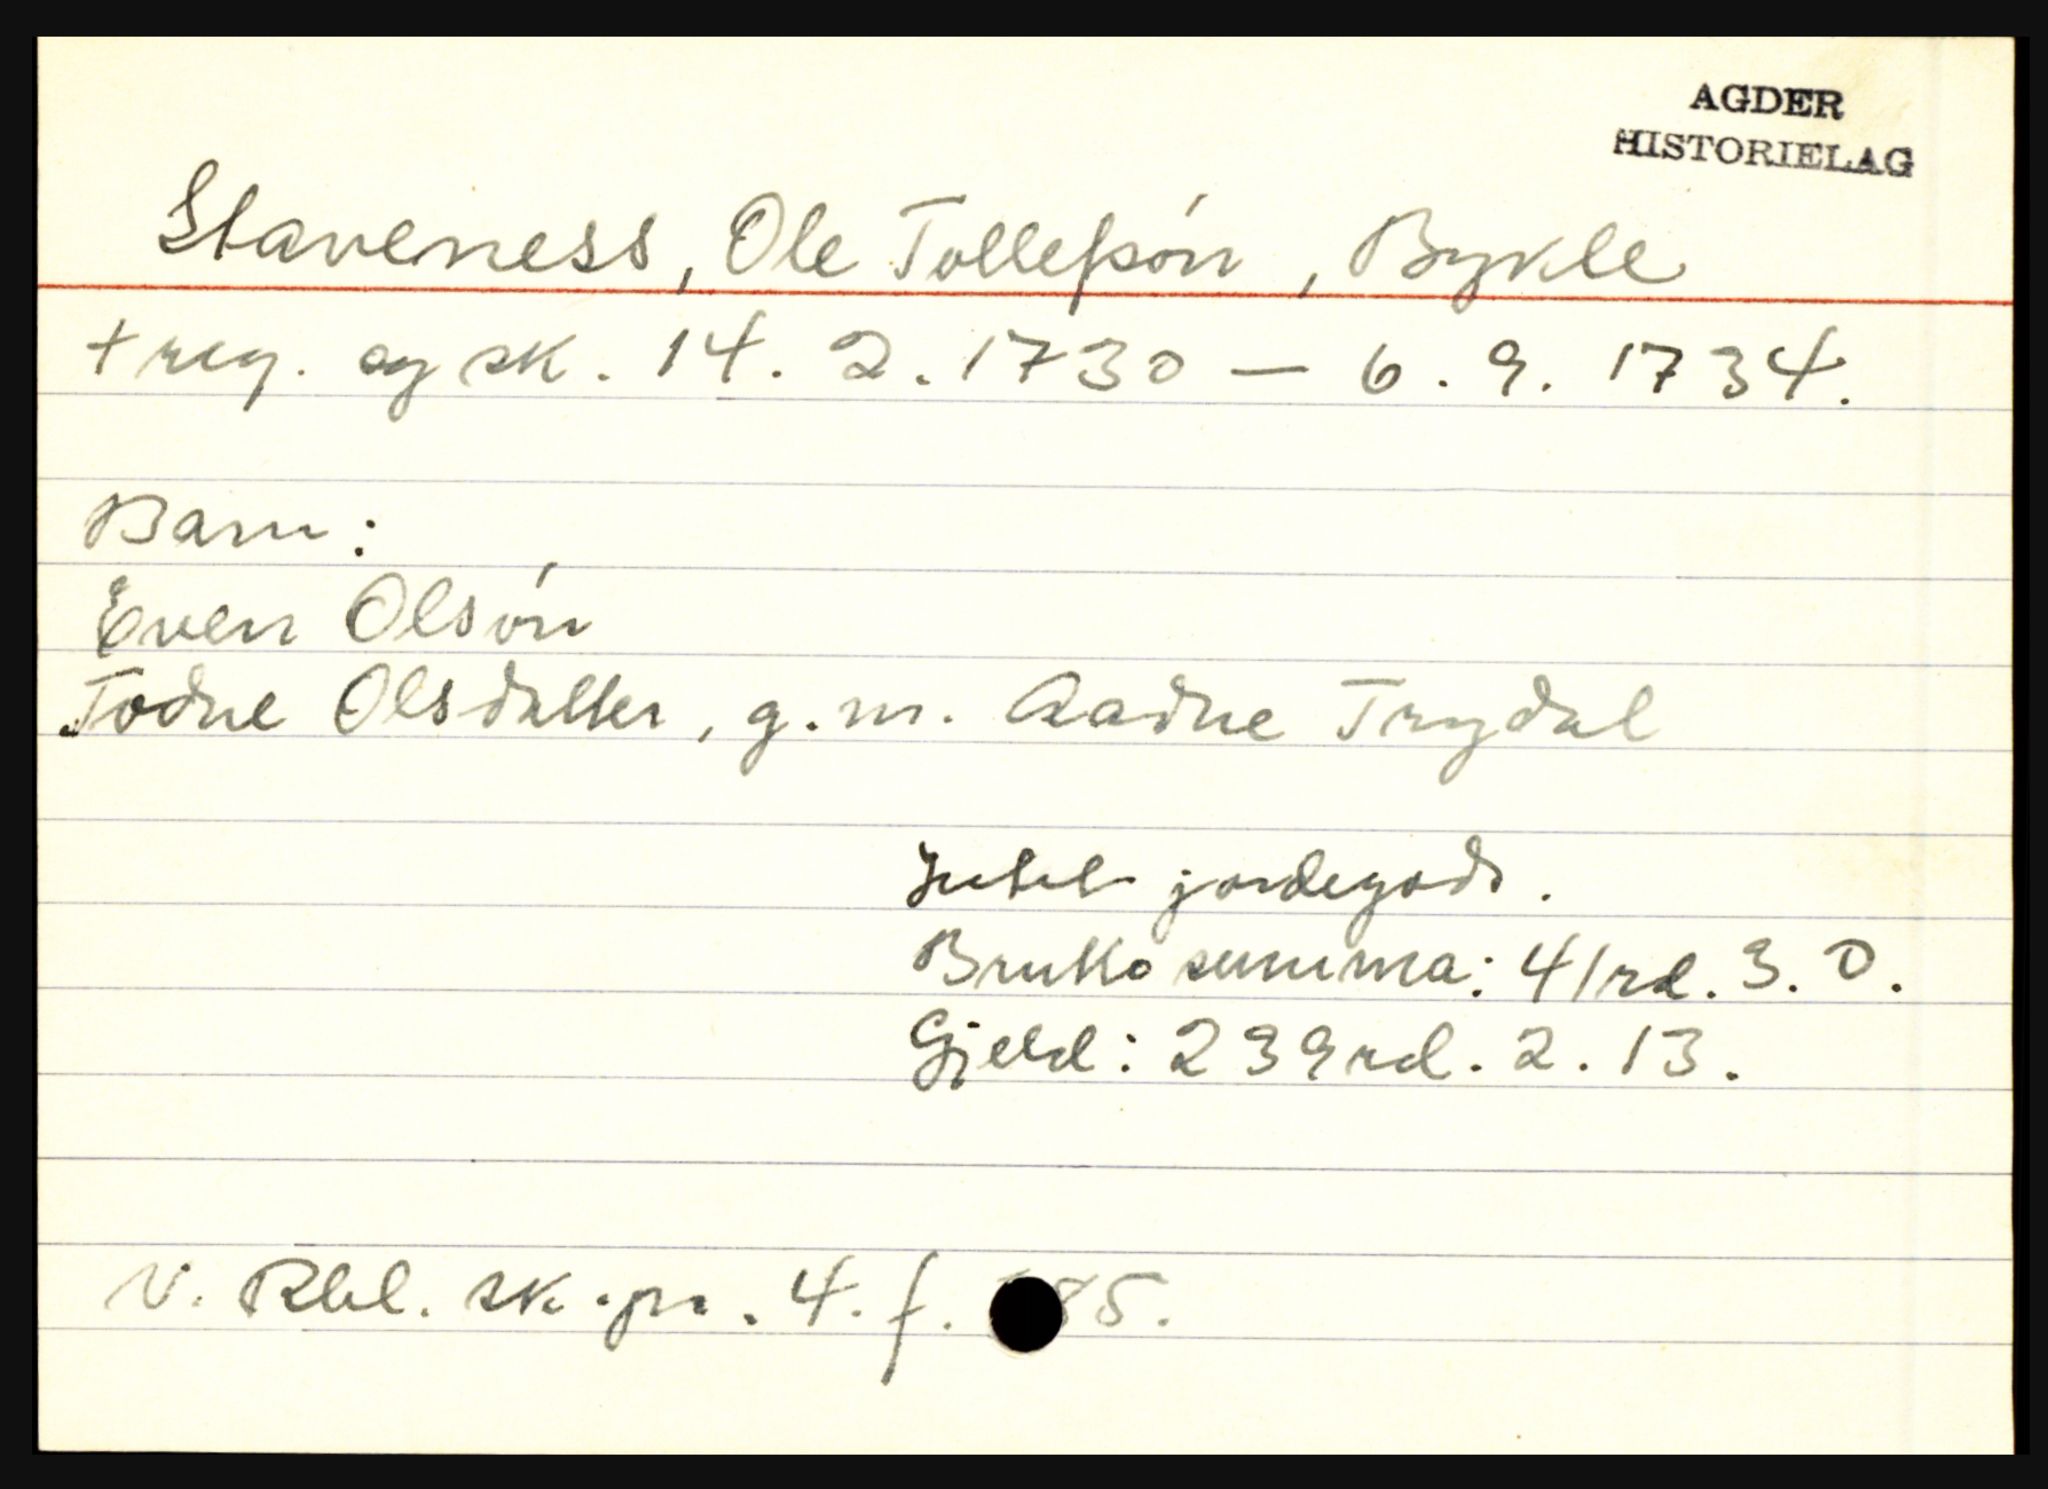 AGDER
HISTORIELAG
Staveness, Ole Tollefsón, Bykle
+ reg. og sk. 14. 2. 1730 — 6. 9. 1734.
Barn:
Even Olsón
Todne Olsdatter, g.m. Aadne Trydal
Intet jordegods.
Brutto summa: 41rd. 3. 0.
Gjeld: 239rd. 2. 13.
N. Rbl. sk.pr. 4. f. 85.